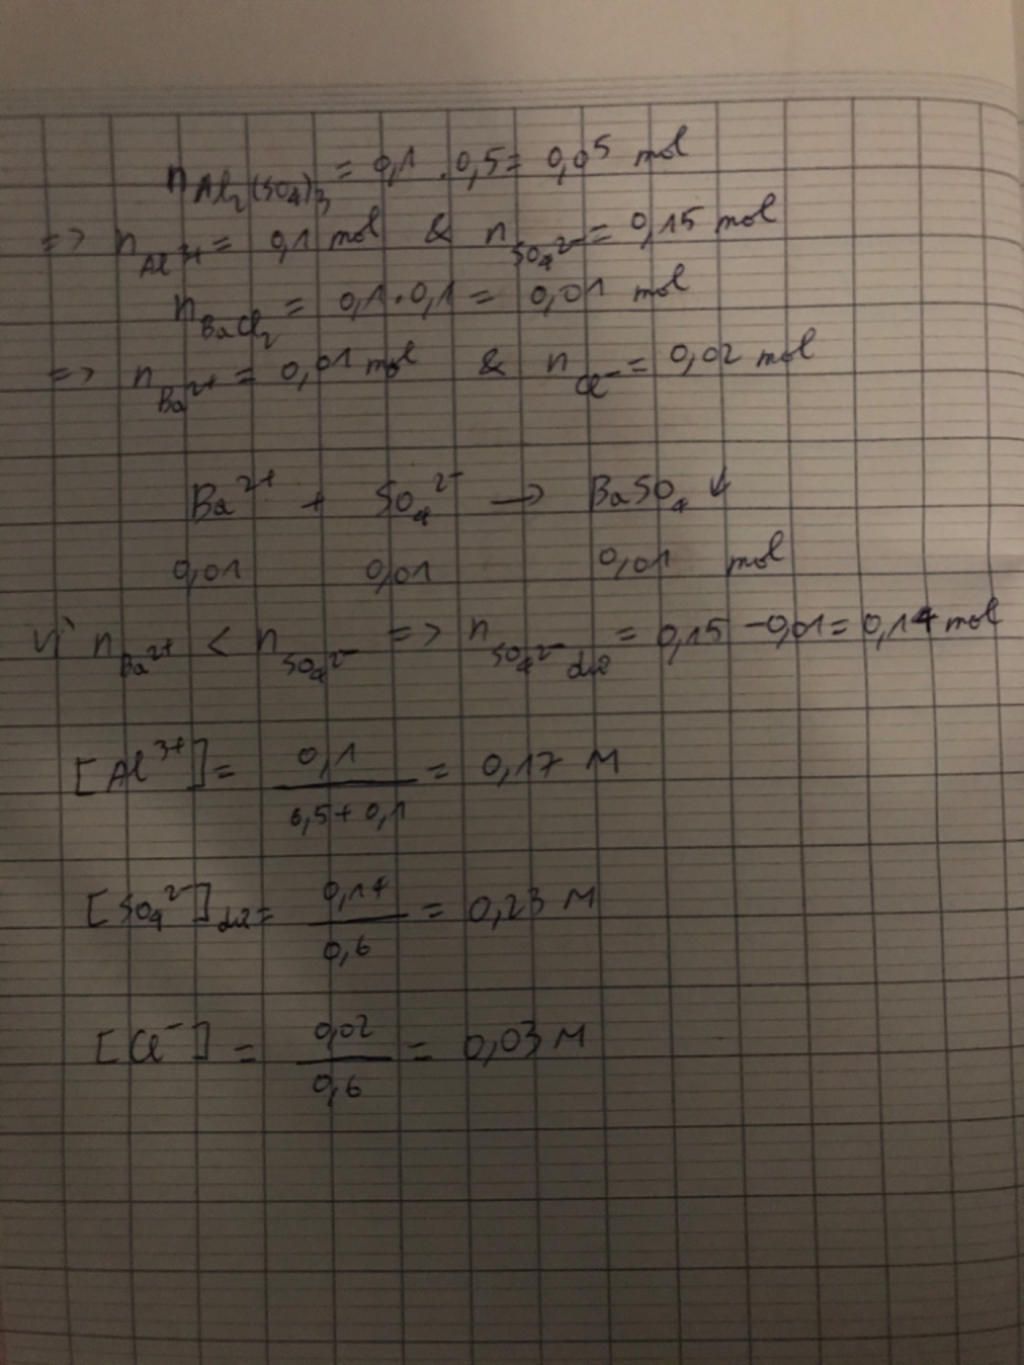 n Al₂(SO₄)₃ = 0,1 . 0,5 = 0,05 mol
=> n Al³⁺ = 0,1 mol & n SO₄²⁻ = 0,15 mol
n BaCl₂ = 0,1 . 0,1 = 0,01 mol
=> n Ba²⁺ = 0,01 mol & n Cl⁻ = 0,02 mol
Ba²⁺ + SO₄²⁻ → BaSO₄ ↓
0,01 0,01 0,01 mol
Vì n Ba²⁺ < n SO₄²⁻ => n SO₄²⁻ dư = 0,15 - 0,01 = 0,14 mol
[Al³⁺] = 0,1 / 0,5 + 0,1 = 0,17 M
[SO₄²⁻] dư = 0,14 / 0,6 = 0,23 M
[Cl⁻] = 0,02 / 0,6 = 0,03 M